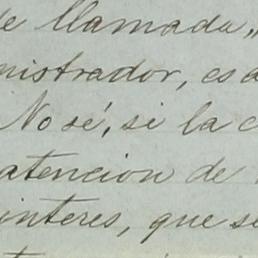 de llamada,
nistrador, es a
No sé, si la c
atencion de
interes, que se